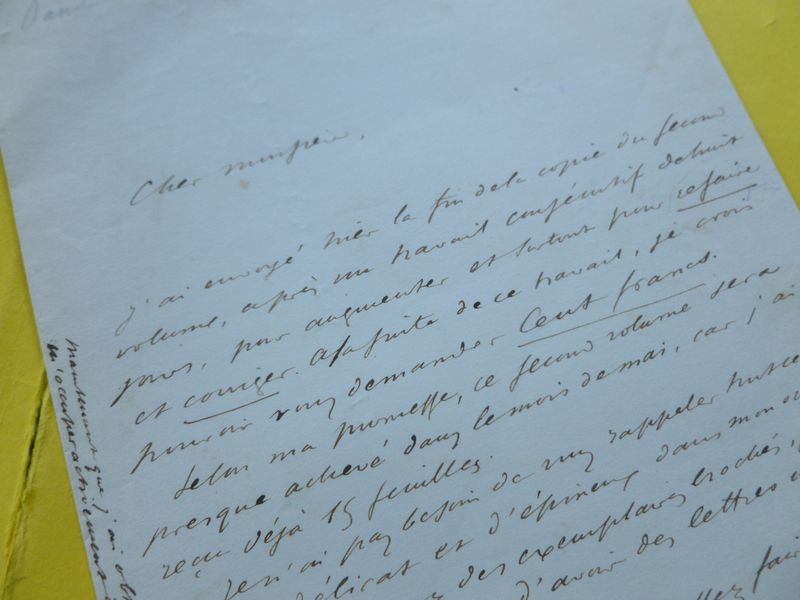 Cher monsieur,
J'ai envoyé hier la fin de la copie du second
volume, après un travail consécutif de huit
jours, pour augmenter et surtout pour refaire
et corriger. A la suite de ce travail, je crois
pouvoir vous demander Cent francs.
Selon ma promesse, ce second volume sera
presque achevé dans le mois de mai, car j'ai
reçu déjà 15 feuilles.
Je n'ai pas besoin de vous rappeler tout ce
délicat et d'épineux dans mon
des exemplaires brochés,
d'avoir des lettres
Maintenant que j'ai
m'occuper activement